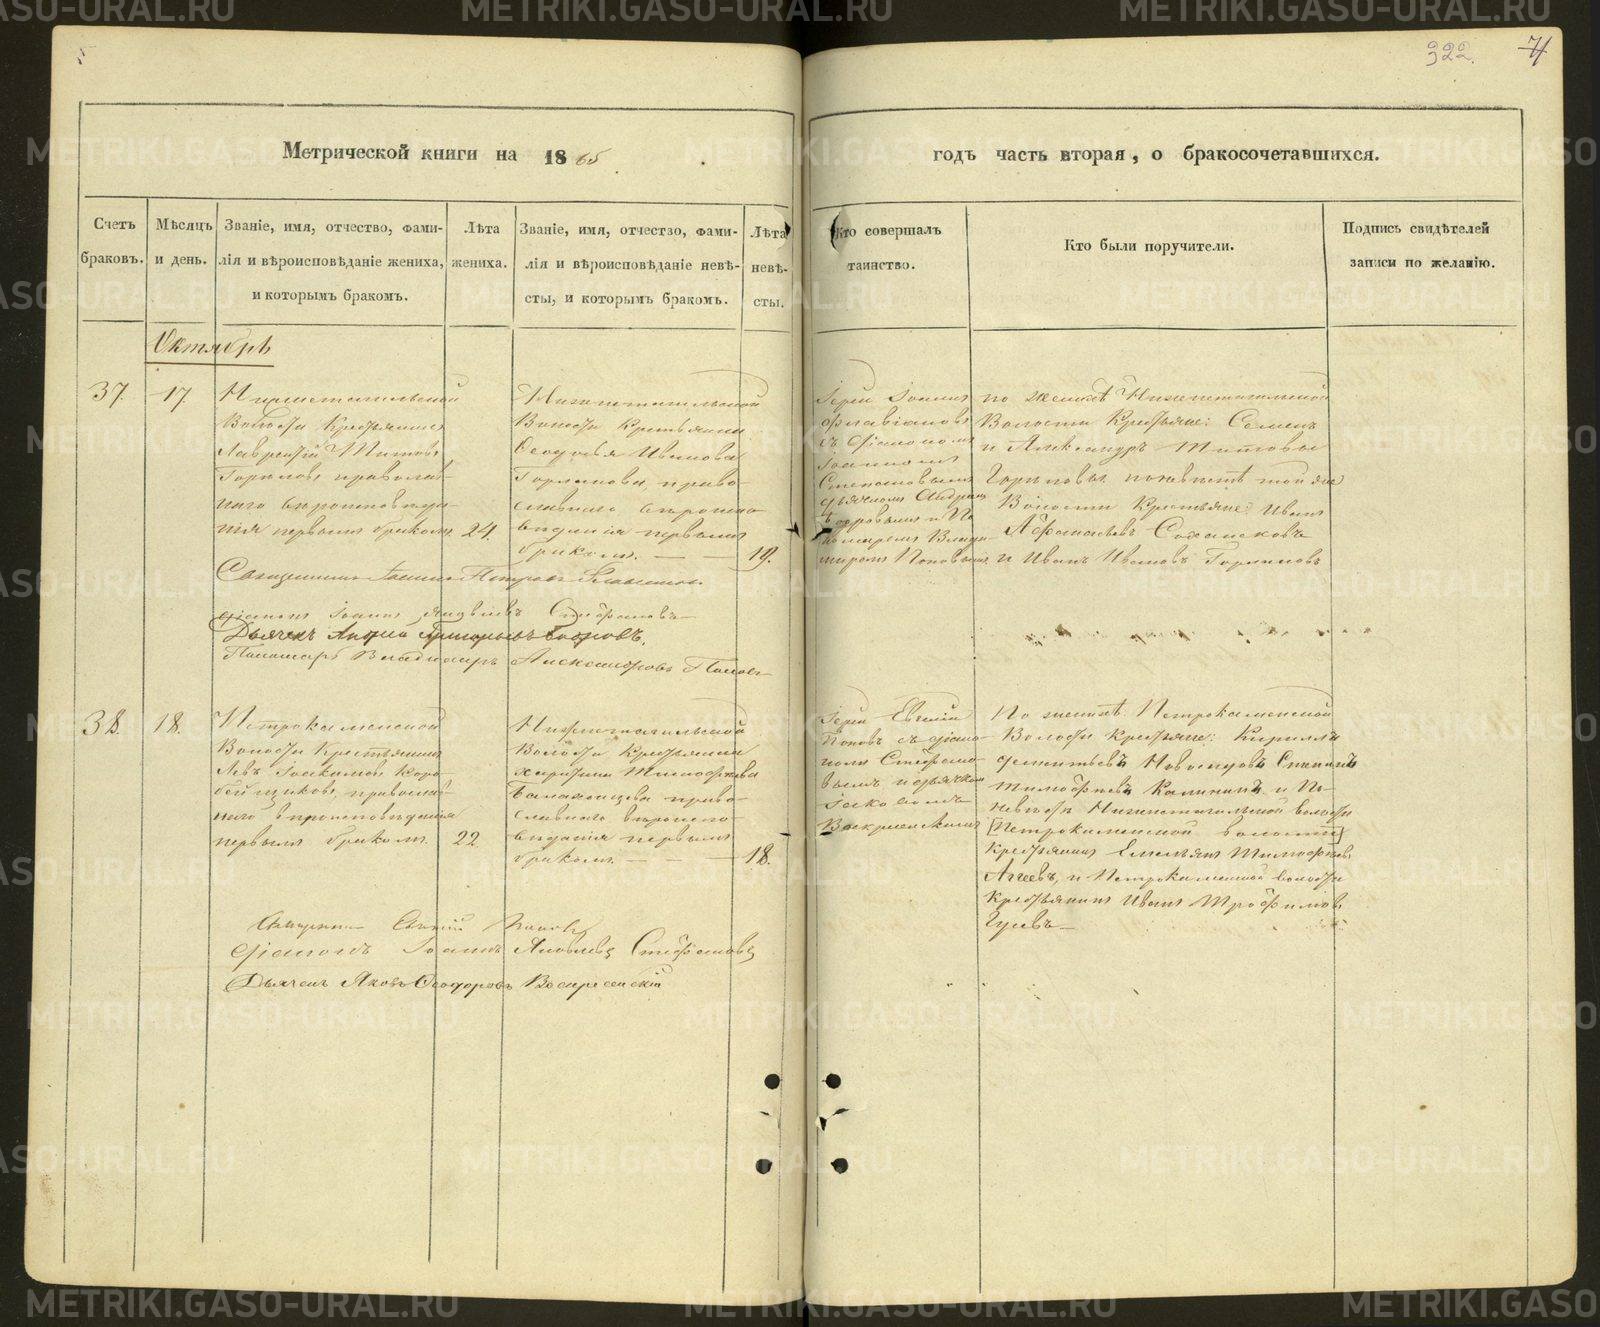 322. 71
Метрической книги на 1865
годъ часть вторая, о бракосочетавшихся.
Счетъ браковъ.
Мѣсяцъ и день.
Званіе, имя, отчество, фами-
лія и вѣроисповѣданіе жениха,
и которымъ бракомъ.
Лѣта
жениха.
Званіе, имя, отчество, фами-
лія и вѣроисповѣданіе невѣ-
сты, и которымъ бракомъ.
Лѣта
невѣ-
сты.
Кто совершалъ
таинство.
Кто были поручители.
Подпись свидѣтелей
записи по желанію.
Октябрь
37. 17.
Нижнетагильской
Волости Крестьянинъ
Лаврентій Титовъ
православ-
наго вѣроисповѣда-
нія первымъ бракомъ. 24.
Нижнетагильской
Волости Крестьянка
Ѳеодосья Иванова
право-
славнаго вѣроиспо-
вѣданія первымъ
бракомъ. — — 19.
Іерей Іоаннъ
Флавіановъ
съ діакономъ
Іоанномъ
Стефановымъ
дьячкомъ Андреемъ
и По-
номаремъ Влади-
миромъ Поповымъ
по женихѣ Нижнетагильской
Волости Крестьяне: Семенъ
и Александръ Титовы
по невѣстѣ той же
Волости Крестьяне: Иванъ
Афанасьевъ
и Иванъ Ивановъ
Священникъ Іоаннъ Петровъ Флавіановъ.
Діаконъ Іоаннъ Яковлевъ Стефановъ
Дьячекъ Андрей Григорьевъ
Пономарь Владиміръ Александровъ Поповъ
38. 18.
Петрокаменской
Волости Крестьянинъ
Левъ Іоакимовъ Коро-
бейщиковъ, православ-
наго вѣроисповѣданія
первымъ бракомъ. 22.
Нижнетагильской
Волости Крестьянка
Харитина Тимофѣева
право-
славнаго вѣроиспо-
вѣданія первымъ
бракомъ. — — — 18.
Іерей Евгеній
Поповъ съ діако-
номъ Стефано-
вымъ и дьячкомъ
Воскресенскимъ
По женихѣ Петрокаменской
Волости крестьяне: Кириллъ
Дементьевъ Степанъ
Тимофѣевъ Калининъ и По
невѣстѣ Нижнетагильской волости
[Петрокаменской волости]
крестьянинъ Емельянъ Тимофѣевъ
Агеевъ, и Петрокаменской волости
крестьянинъ Иванъ Трофимовъ
Гусевъ
Священникъ Евгеній Поповъ
Діаконъ Іоаннъ Яковлевъ Стефановъ
Дьячекъ Яковъ Ѳеодоровъ Воскресенскій
METRIKI.GASO-URAL.RU